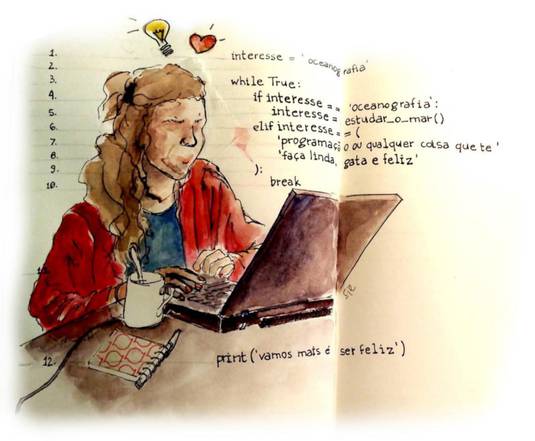 1. interesse = 'oceanografia'
2.
3. while True:
4. if interesse == 'oceanografia':
5. interesse = estudar_o_mar()
6. elif interesse == (
7. 'programação ou qualquer coisa que te '
8. 'faça linda, gata e feliz'
9. ):
10. break
12. print('vamos mais é ser feliz')